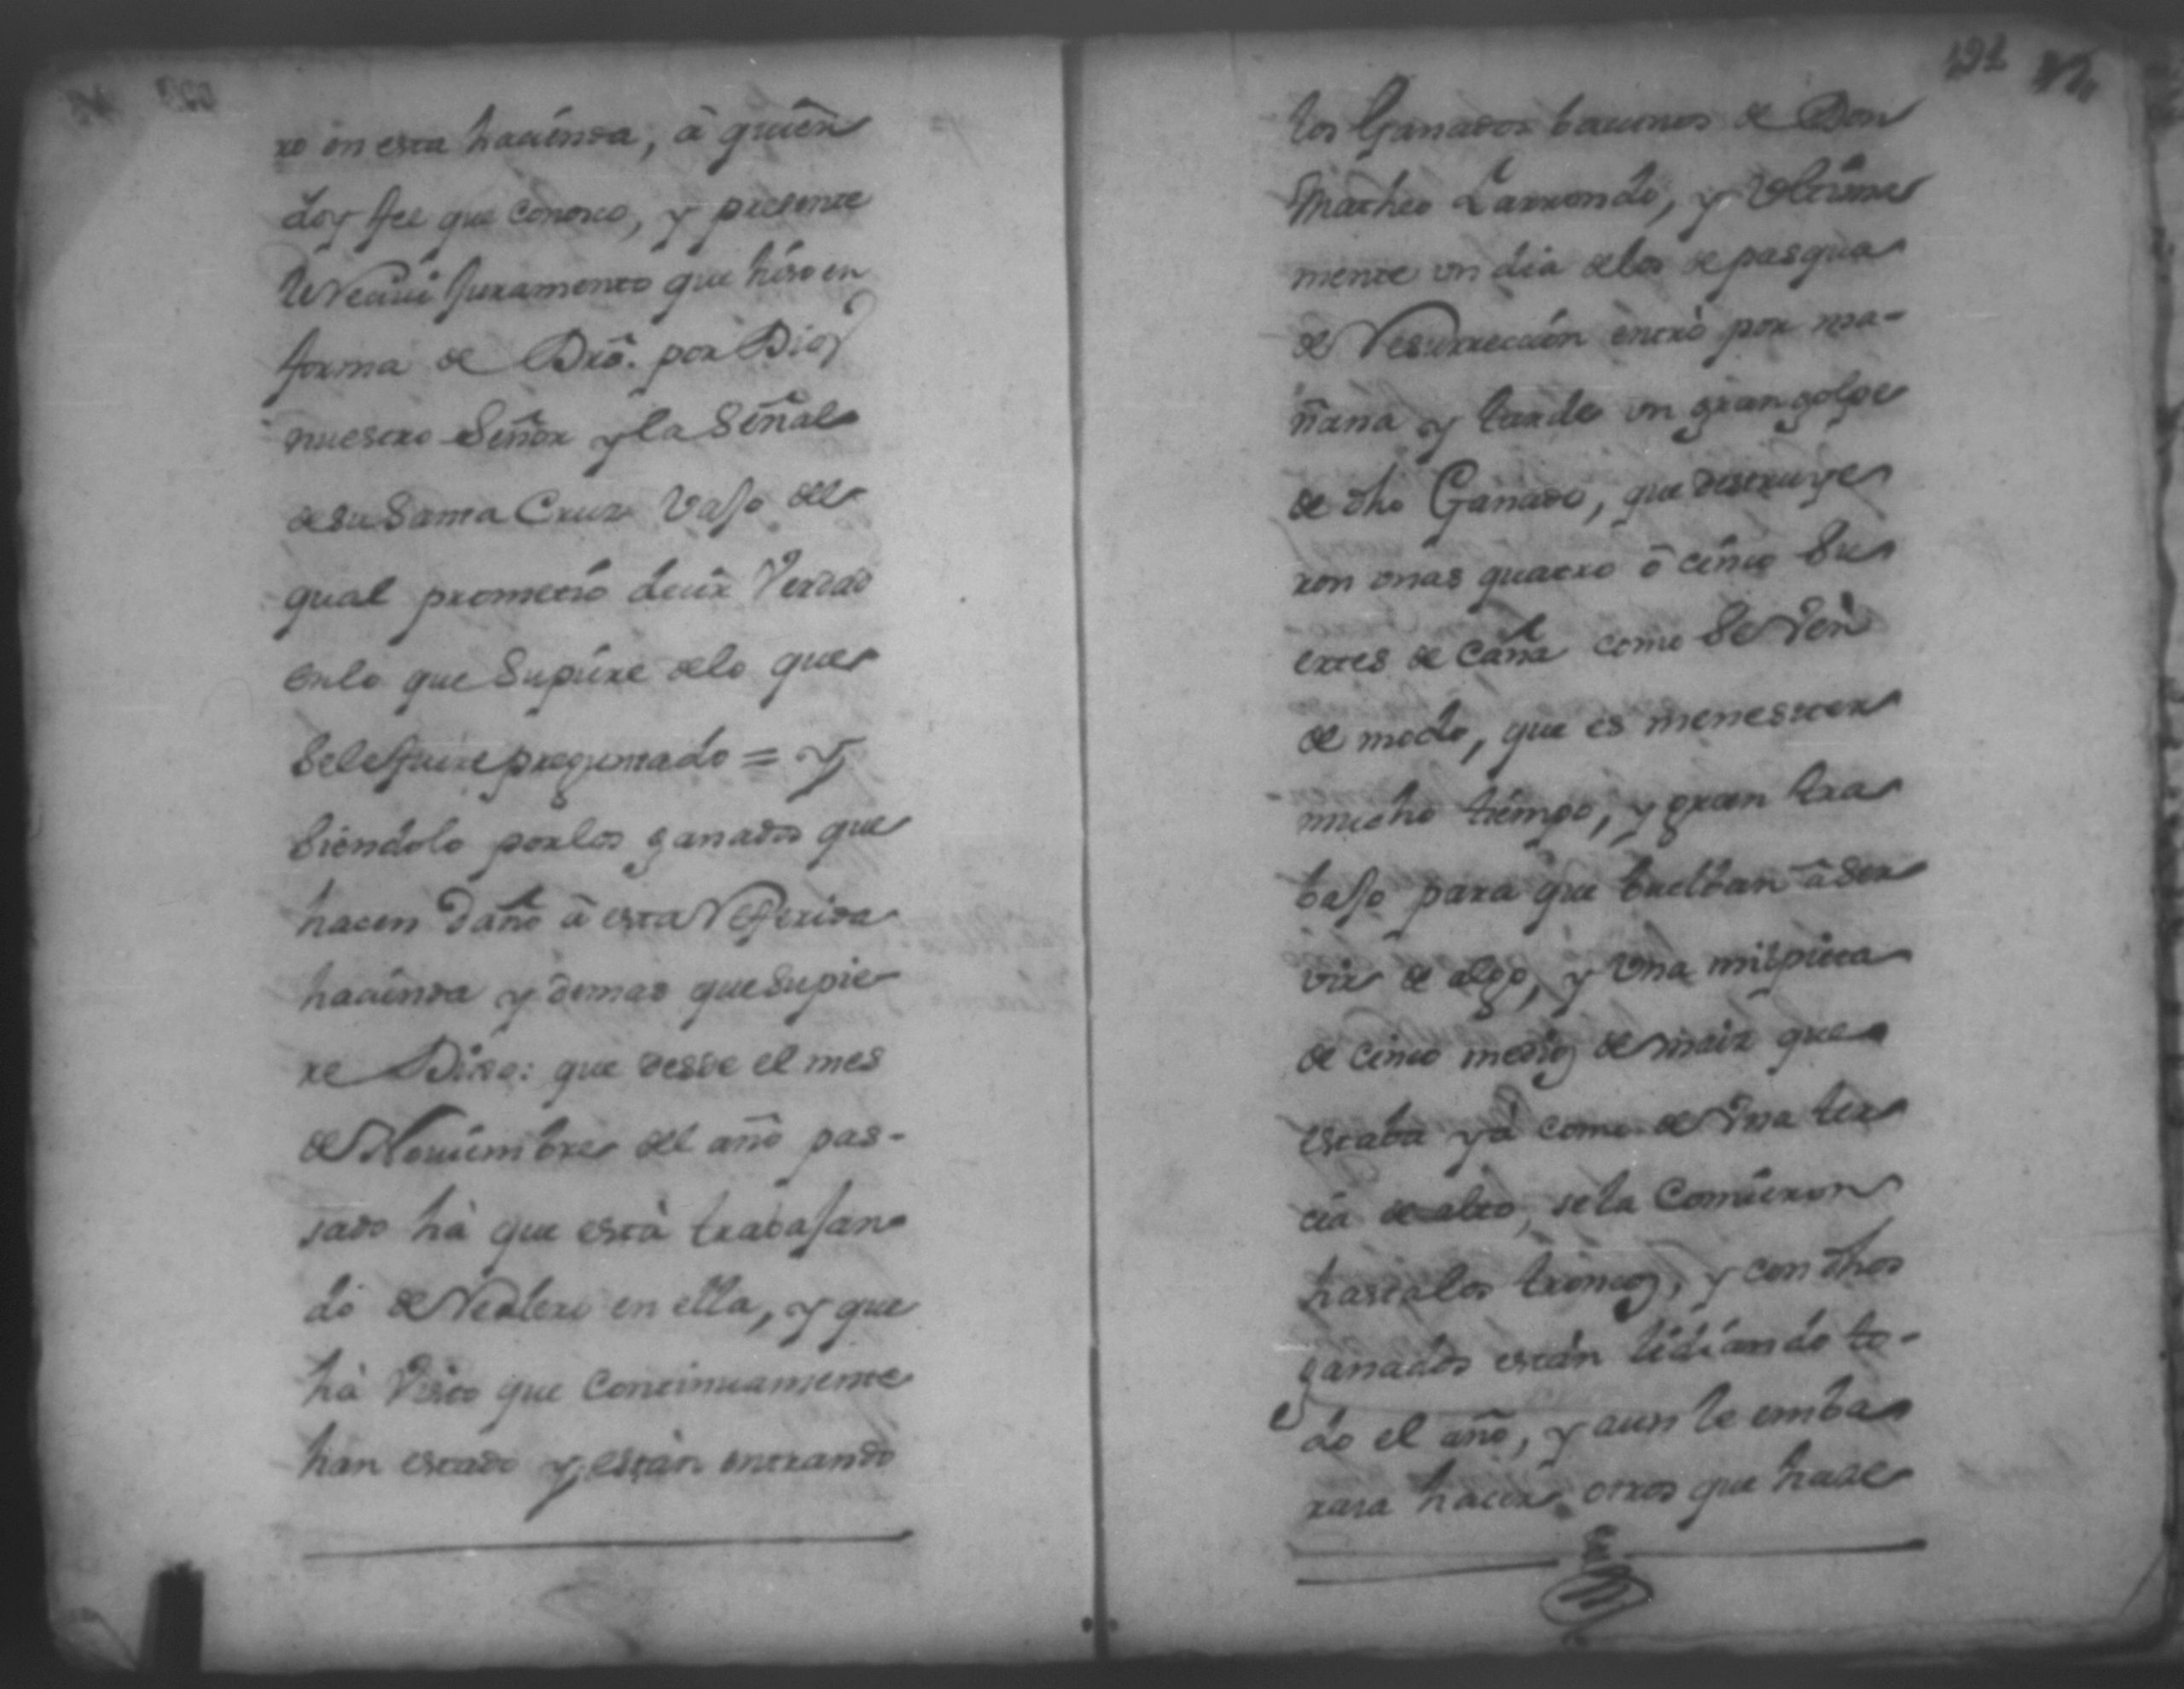 ro en esta hacienda, à quien
doy fee que conosco, y presente
le Recivi Juramento que hiso en
forma de Dro. por Dios
nuestro Señor y la Señal
de su Santa Cruz vajo del
qual prometió decir Verdad
en lo que Supiere de lo que
Se le fuere preguntado = y
siendolo por los ganados que
hacen Daño à esta Referida
hacienda y demas que Supie-
re Dixo: que desde el mes
de Noviembre del año pas-
sado hà que està trabajan
do de Realero en ella, y que
hà Visto que Continuamente
han estado y estàn entrando
191
los Ganados bacunos de Don
Matheo Larrondo, y Ultima
mente un dia de los de pasqua
de Resurrección entrò por ma-
ñana y tarde un gran golpe
de dho Ganado, que destruye
ron unas quatro ô cinco Su
ertes de Caña como Se Vèn
de modo, que es menester
mucho tiempo, y gran tra
bajo para que buelban à Ser
vir de algo, y Una milpita
de cinco medios de maiz que
estaba yà como de Una ter
cia de alto, se la Comieron
hasta los troncos, y con dhos
ganados estàn lidiando to-
do el año, y aun le emba
rasa hacer otros que hacer